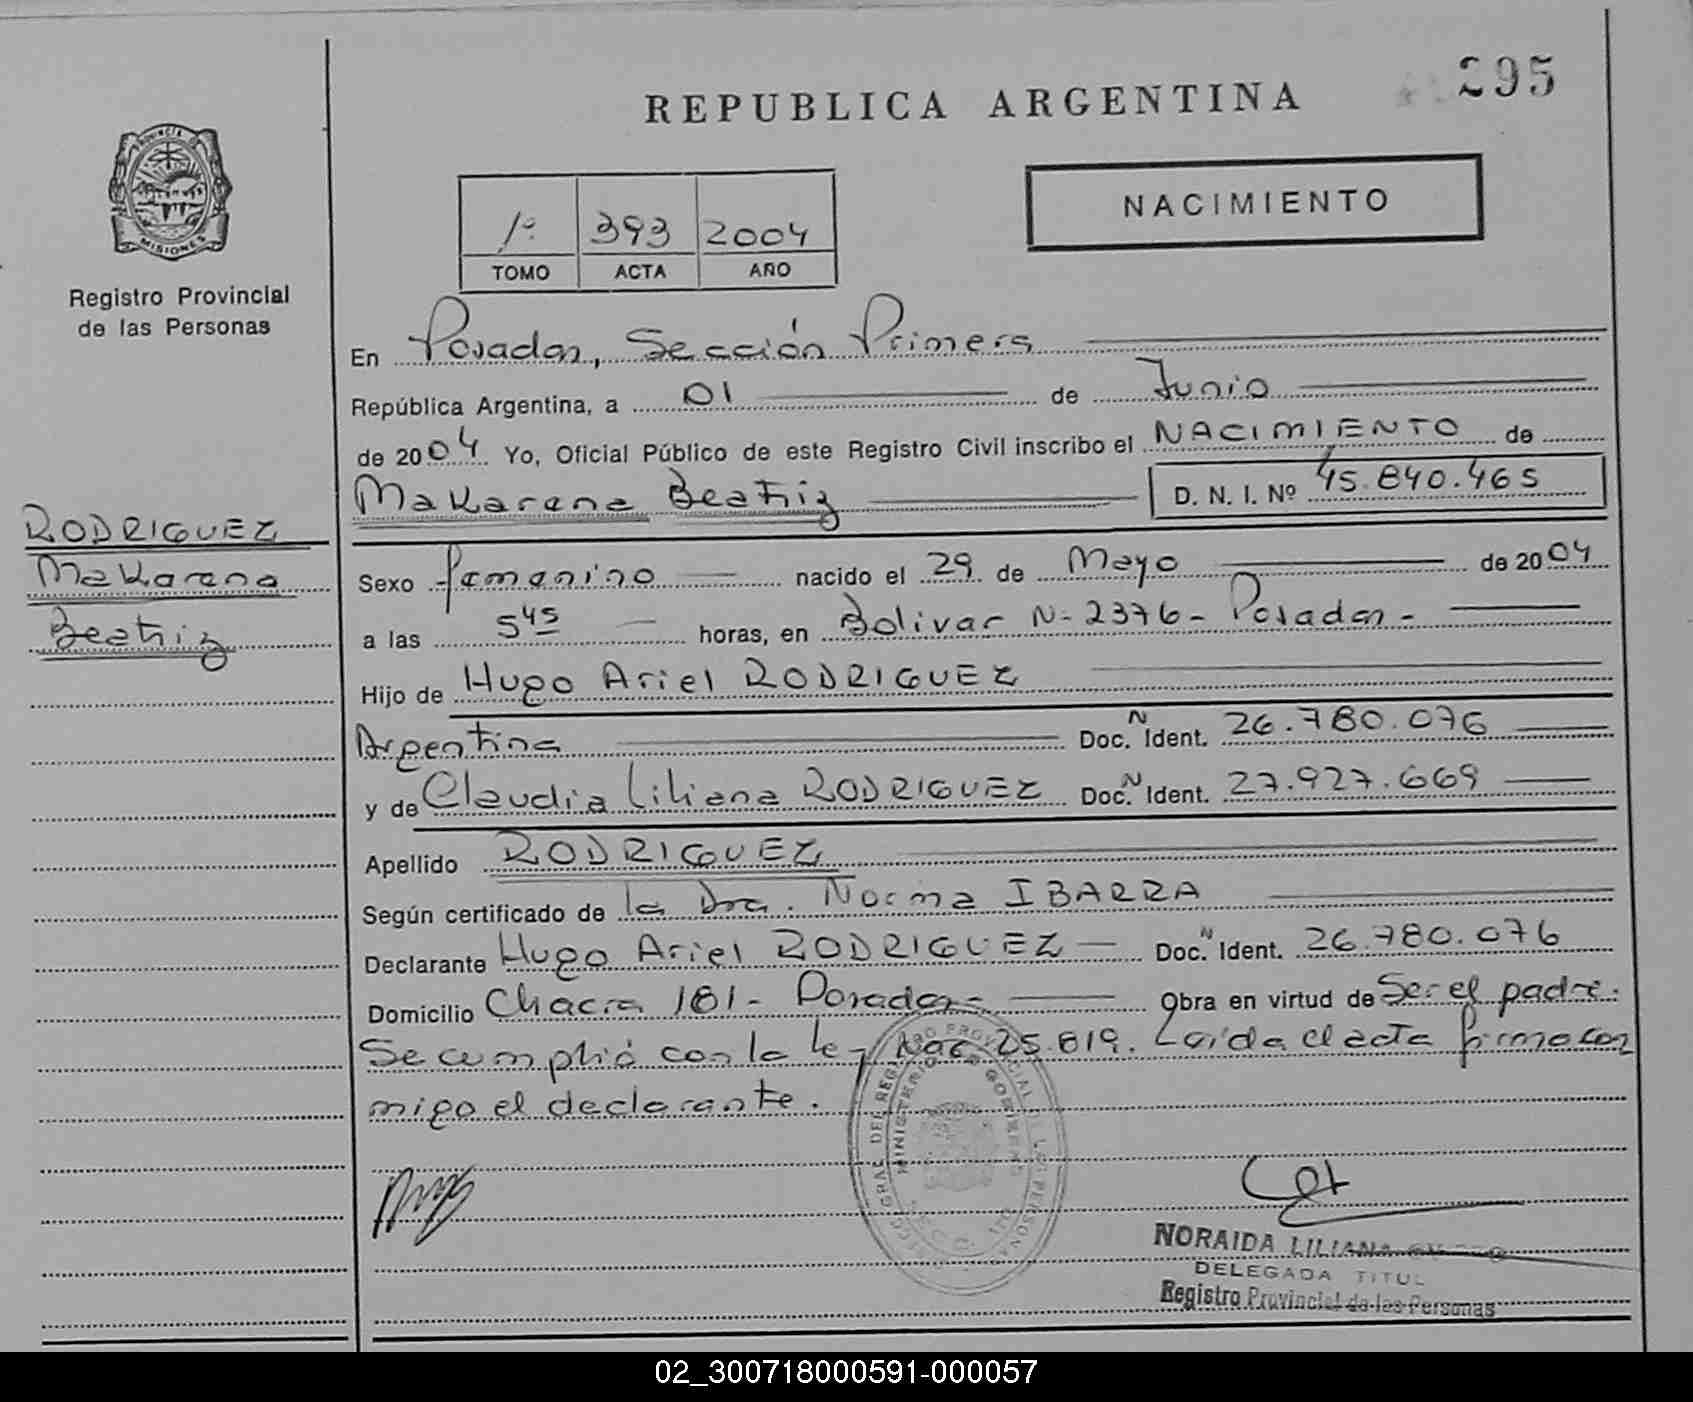 295
REPUBLICA ARGENTINA
PROVINCIA DE
MISIONES
Registro Provincial
de las Personas
1º 393 2004
TOMO ACTA AÑO
NACIMIENTO
En Posadas, Sección Primera
República Argentina, a 01 de Junio
de 2004 Yo, Oficial Público de este Registro Civil inscribo el NACIMIENTO de
Makarena Beatriz D. N. I. Nº 45.840.465
RODRIGUEZ
Makarena
Beatriz
Sexo femenino nacido el 29 de Mayo de 2004
a las 5 45 horas, en Bolivar N- 2376- Posadas-
Hijo de Hugo Ariel RODRIGUEZ
Argentina Doc. N Ident. 26.780.076
y de Claudia Liliana RODRIGUEZ Doc. N Ident. 27.927.669
Apellido RODRIGUEZ
Según certificado de la Dra. Norma IBARRA
Declarante Hugo Ariel RODRIGUEZ Doc. N Ident. 26.780.076
Domicilio Chacra 181- Posadas- Obra en virtud de Ser el padre.
Se cumplió con la ley Nac 25.819. Leída el acta firma con
migo el declarante.
NORAIDA LILIANA
DELEGADA TITUL
Registro Provincial de las Personas
02_300718000591-000057